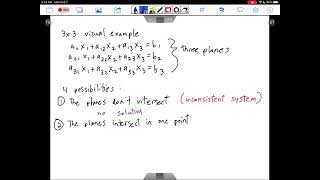 3x3 visual example
a₁₁x₁+a₁₂x₂+a₁₃x₃=b₁
a₂₁x₁+a₂₂x₂+a₂₃x₃=b₂
a₃₁x₁+a₃₂x₂+a₃₃x₃=b₃
three planes
4 possibilities:
① The planes don't intersect (inconsistent system)
no solution
② The planes intersect in one point